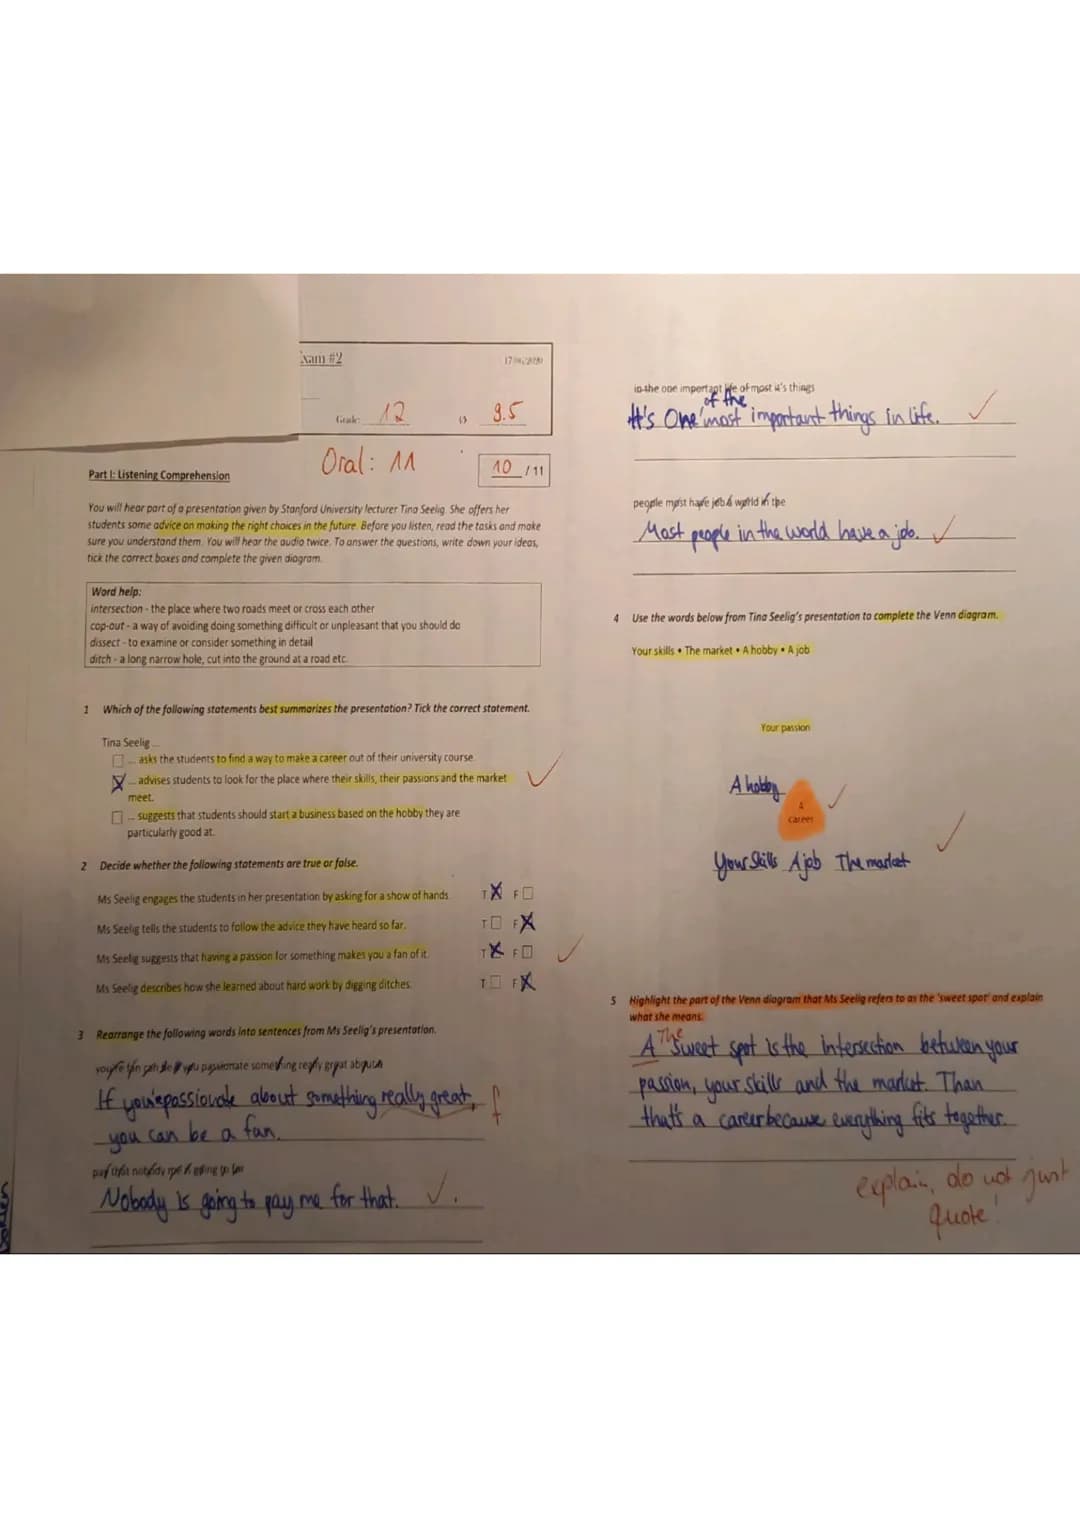 Exam #2
Grade: 12
9.5
Oral: 11
10 /11
Part I: Listening Comprehension
You will hear part of a presentation given by Stanford University lecturer Tina Seelig. She offers her
students some advice on making the right choices in the future. Before you listen, read the tasks and make
sure you understand them. You will hear the audio twice. To answer the questions, write down your ideas,
tick the correct boxes and complete the given diagram.
Word help:
intersection - the place where two roads meet or cross each other
cop-out - a way of avoiding doing something difficult or unpleasant that you should do
dissect - to examine or consider something in detail
ditch - a long narrow hole, cut into the ground at a road etc.
1 Which of the following statements best summarizes the presentation? Tick the correct statement.
Tina Seelig ...
... asks the students to find a way to make a career out of their university course.
... advises students to look for the place where their skills, their passions and the market
meet.
... suggests that students should start a business based on the hobby they are
particularly good at.
2 Decide whether the following statements are true or false.
Ms Seelig engages the students in her presentation by asking for a show of hands. T F
Ms Seelig tells the students to follow the advice they have heard so far. T F
Ms Seelig suggests that having a passion for something makes you a fan of it. T F
Ms Seelig describes how she learned about hard work by digging ditches. T F
3 Rearrange the following words into sentences from Ms Seelig's presentation.
you're fan can be if you passionate something really great about a
If you're passionate about something really great, f
you can be a fan.
pay that nobody me is going to for
Nobody is going to pay me for that.
in the one important life of most it's things
of the
It's One most important things in life.
people most have job a world in the
Most people in the world have a job.
4 Use the words below from Tina Seelig's presentation to complete the Venn diagram.
Your skills • The market • A hobby • A job
Your passion
A hobby
A
career
Your Skills A job The market
5 Highlight the part of the Venn diagram that Ms Seelig refers to as the 'sweet spot' and explain
what she means.
The
A Sweet spot is the intersection between your
passion, your skills and the market. Than
that's a career because everything fits together.
explain, do not just
quote!